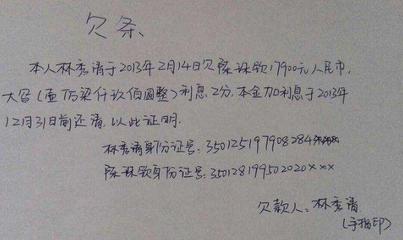 欠条
本人林秀清于2013年2月14日欠陈珠钦17900元人民币,
大写(壹仟柒仟玖佰圆整)利息2分.本金加利息于2013年
12月31日前还清.以此证明.
林秀清身份证号:350125197908284
陈珠钦身份证号:350128199502020×××
欠款人:林秀清
(手指印)